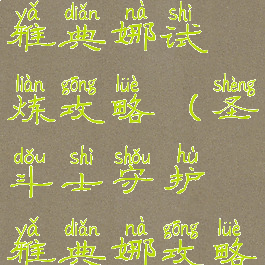 yǎ diǎn nà shì
雅典娜试
liàn gōng lüè shèng
炼攻略(圣
dǒu shì shǒu hù
斗士守护
yǎ diǎn nà gōng lüè
雅典娜攻略